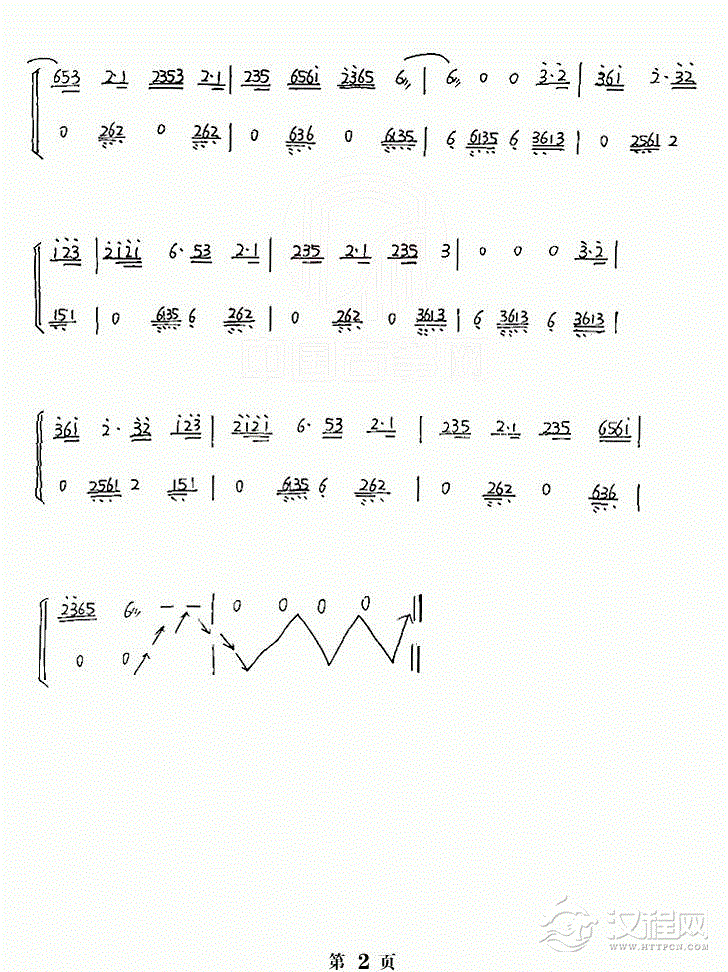 653 2·1 2353 2·1 | 235 656i 2̇3̇65 6 | 6 0 0 3̇·2̇ | 3̇6i 2̇· 3̇2̇
0 262 0 262 | 0 636 0 6135 | 6 6135 6 3613 | 0 2561 2
i2̇3̇ | 2̇i2̇i 6· 53 2·1 | 235 2·1 235 3 | 0 0 0 3̇·2̇ |
151 | 0 6135 6 262 | 0 262 0 3613 | 6 3613 6 3613 |
3̇6i 2̇· 3̇2̇ i2̇3̇ | 2̇i2̇i 6· 53 2·1 | 235 2·1 235 656i |
0 2561 2 151 | 0 6135 6 262 | 0 262 0 636 |
2̇3̇65 6 — — | 0 0 0 0 ||
0 0 | ||
汉程网
WWW.HTTPCN.COM
第 2 页